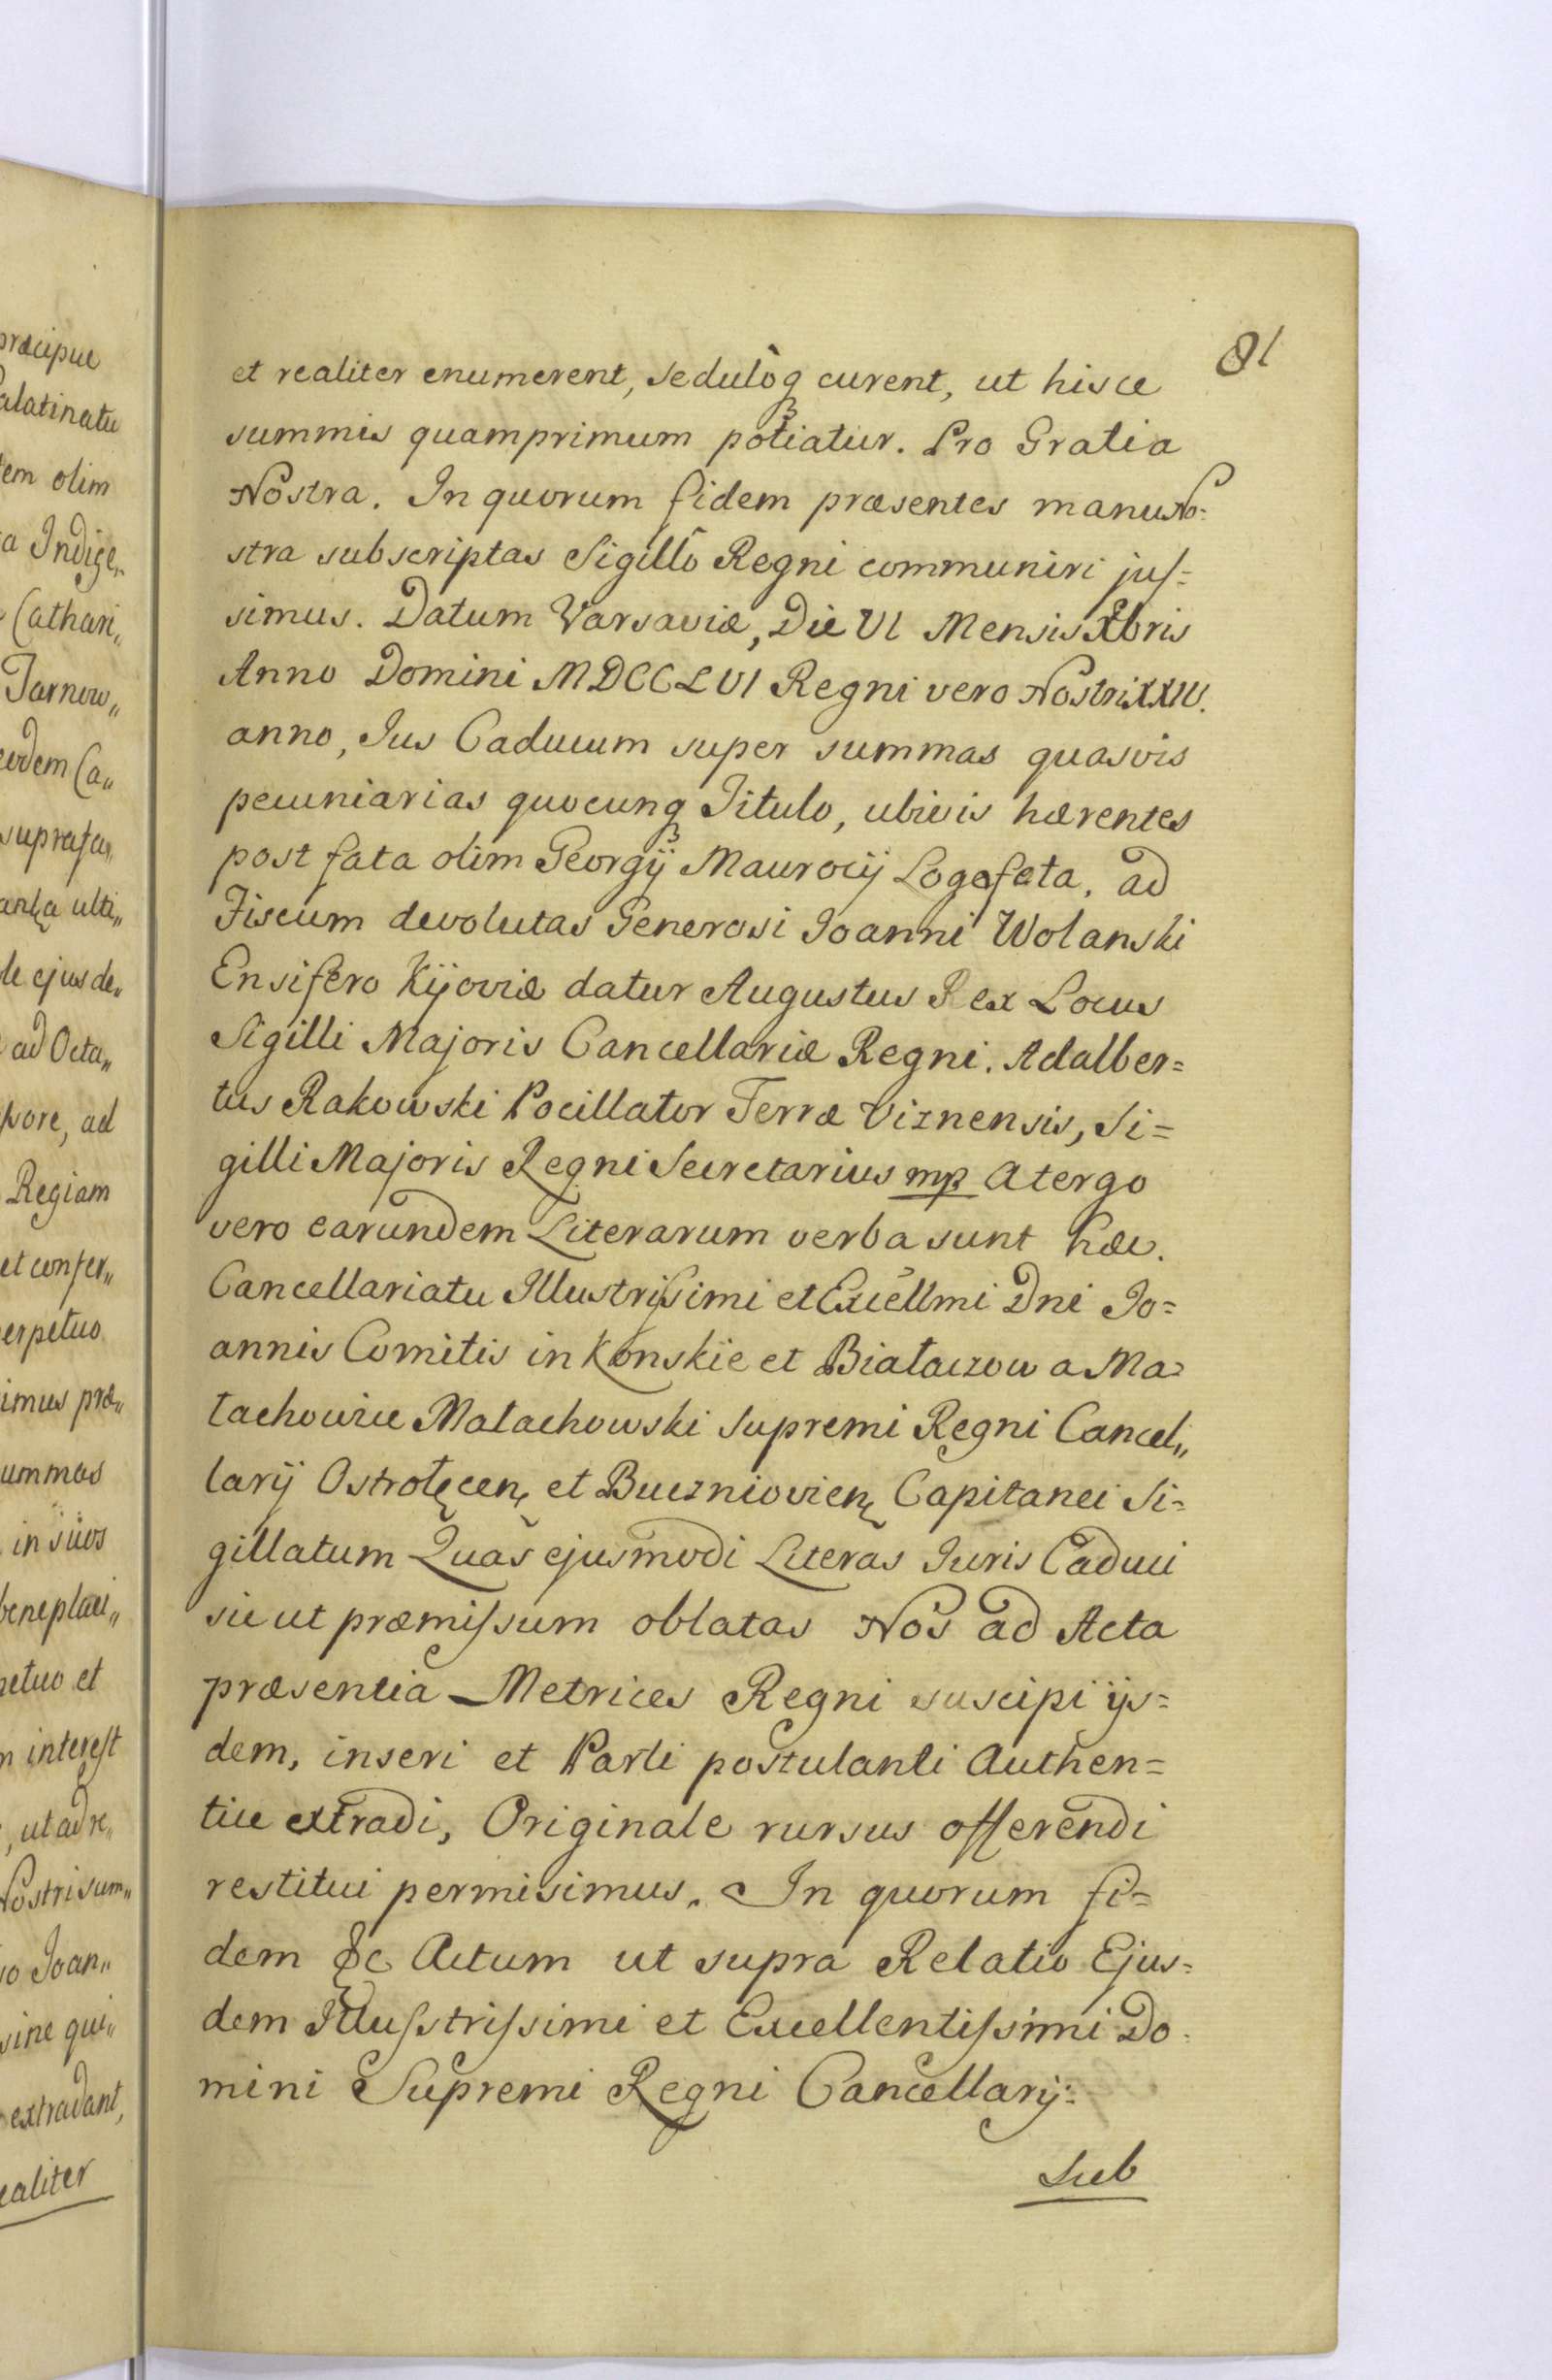 præcipue
alatinatu
em olim
a Indige„
Cathari„
Tarnow„
eodem Ca„
suprafa„
ulti„
le ejus de„
ad Octa„
pore, ad
Regiam
et confer„
erpetuo
imus præ„
ummas
in suos
beneplaci„
petuo et
n interest
, ut ad re„
Nostri sum„
io Joan„
sine qui„
extradant,
ealiter
81
et realiter enumerent, sedulòq curent, ut hisce
summis quamprimum potiatur. Pro Gratia
Nostra. In quorum fidem præsentes manu No=
stra subscriptas Sigillô Regni communiri jus=
simus. Datum Varsaviæ, Die VI Mensis Xbris
Anno Domini MDCCLVI Regni vero Nostri XXIV.
anno, Jus Caducum super summas quasvis
pecuniarias quocunq Titulo, ubivis hærentes
post fata olim Georgij Maurocij Logofeta, ad
Fiscum devolutas Generosi Joanni Wolanski
Ensifero Kijoviæ datur Augustus Rex Locus
Sigilli Majoris Cancellariæ Regni. Adalber=
tus Rakowski Pocillator Terræ Viznensis, Si=
gilli Majoris Regni Secretarius mp Atergo
vero earundem Literarum verba sunt hæc.
Cancellariatu Illustrissimi et Excellmi Dni Jo=
annis Comitis in Konskie et Białaczow a Ma=
łachowice Małachowski Supremi Regni Cancel„
larij Ostrołęcen, et Buczniovien, Capitanei Si=
gillatum Quas ejusmodi Literas Juris Caduci
sic ut præmissum oblatas Nos ad Acta
præsentia Metrices Regni suscipi ijs=
dem, inseri et Parti postulanti Authen=
tice extradi, Originale rursus offerendi
restitui permisimus. In quorum fi=
dem &c Actum ut supra Relatio Ejus=
dem Illusstrissimi et Excellentissimi Do=
mini Supremi Regni Cancellarij=
Sub